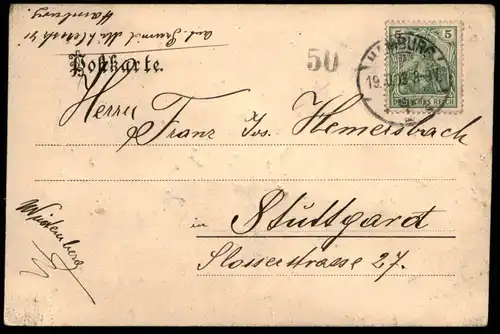 Hamburg.
Postkarte.
50
5
HAMBURG
DEUTSCHES REICH
Herrn
Franz Jos. Hemersbach
in Stuttgard
Slosserstrasse 27.